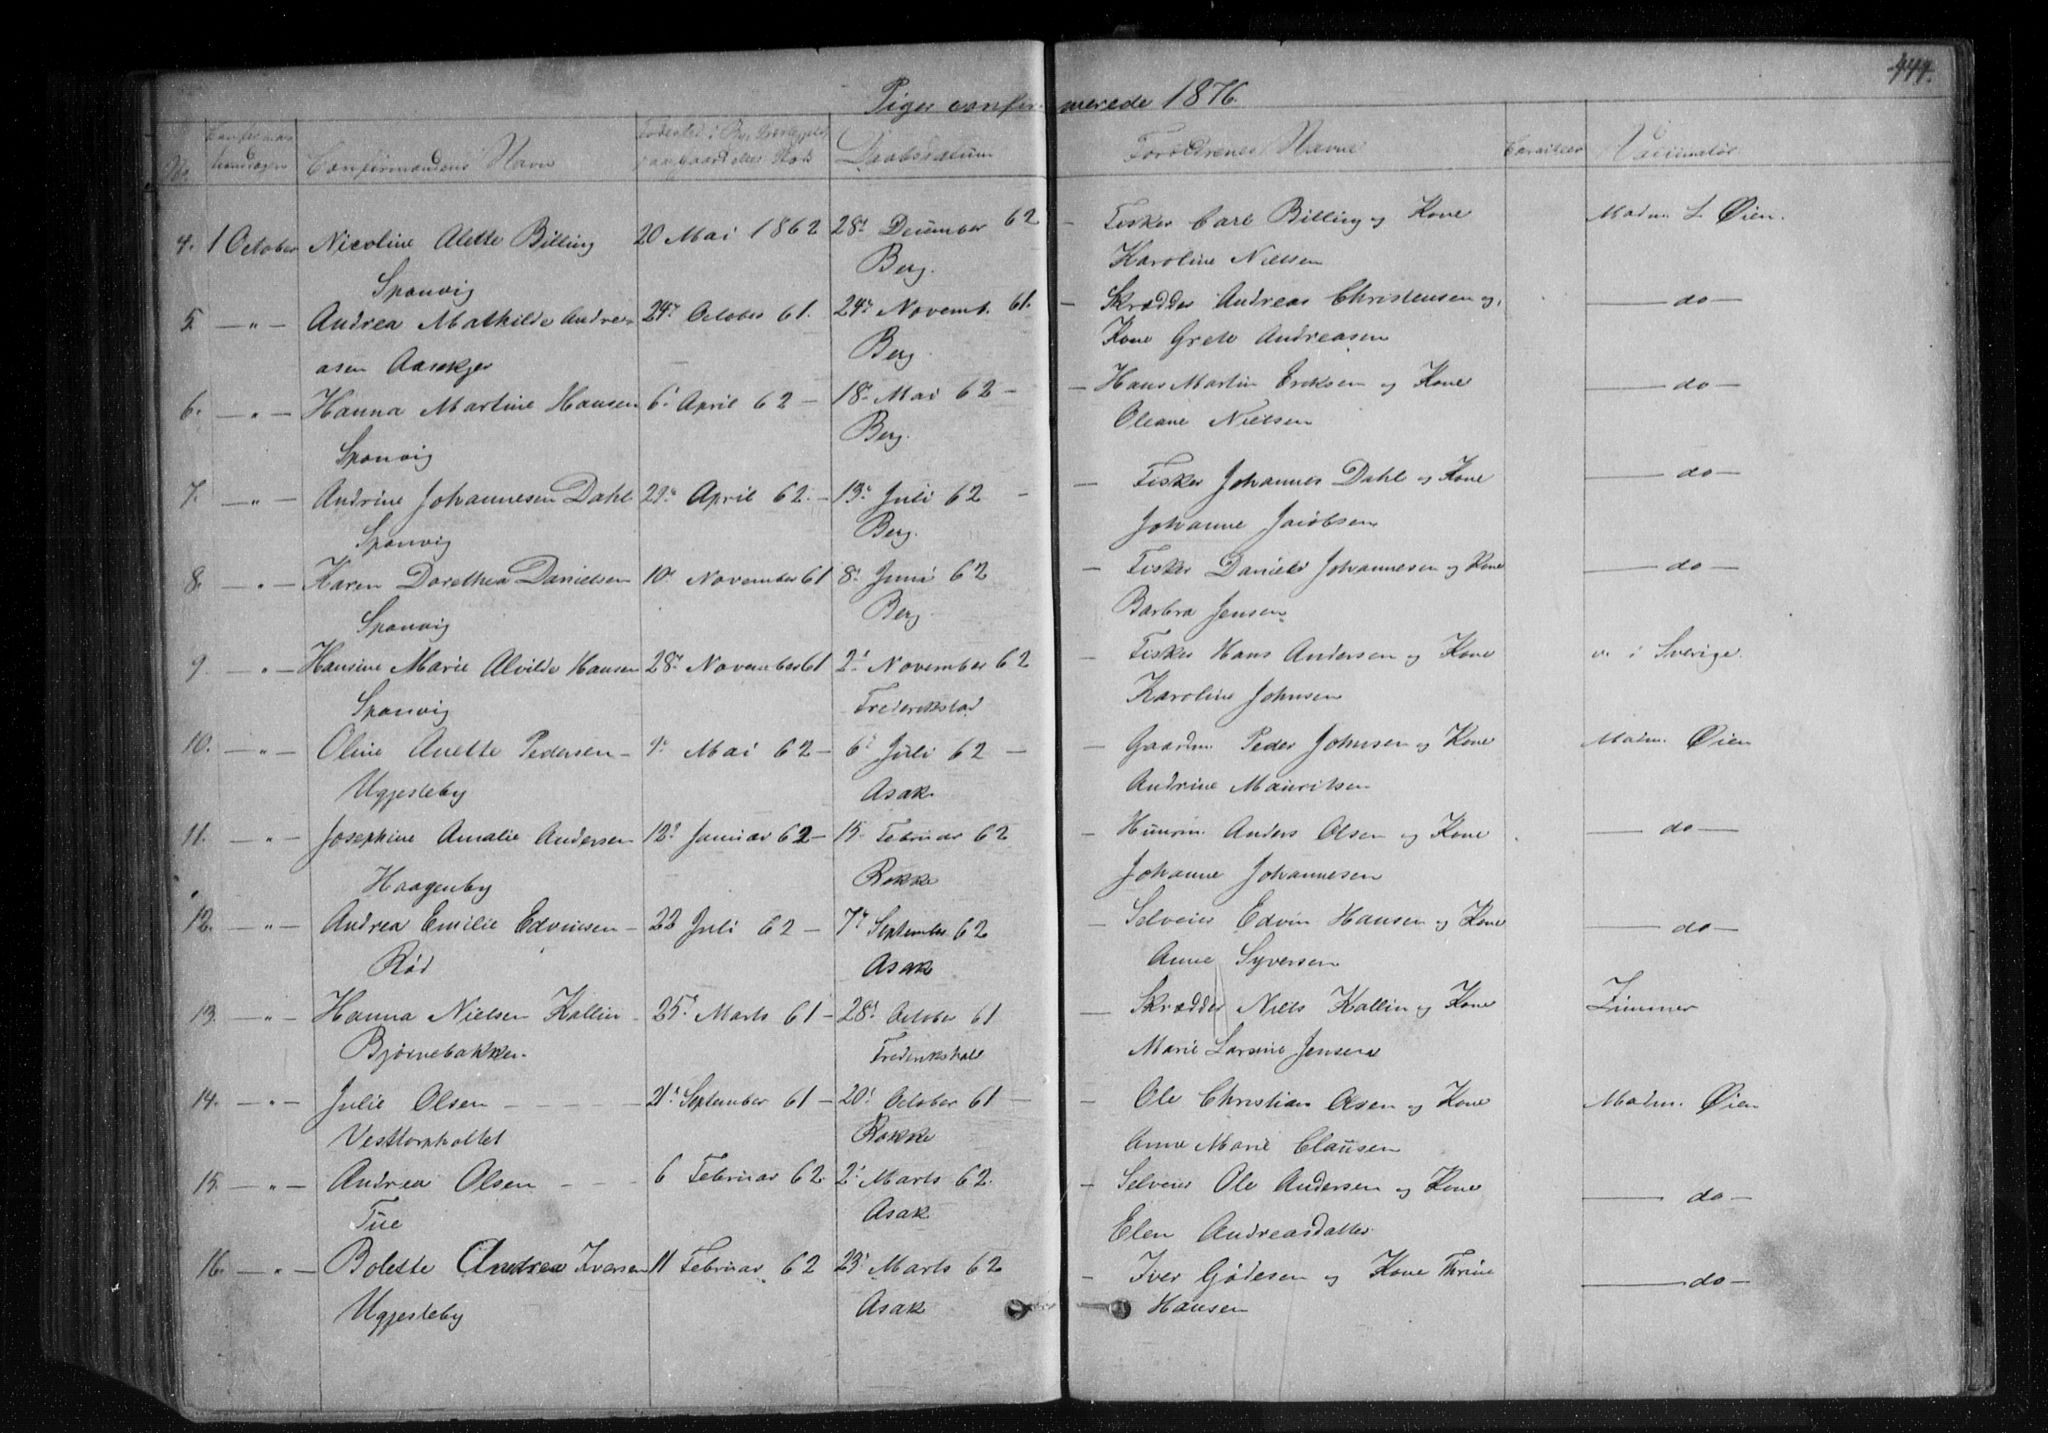 444.
Piger confirmerede 1876.
No. Confirmandens Navn Daabsdatum Forældrenes Navne Vaccinatør
4. 1 October Nicoline Alette Billing 20 Mai 1862 28de December 62 – Fisker Carl Billing og Kone Madm. L. Øien.
Sponvig Berg. Karoline Nielsen
5. — " — Andrea Mathilde Andre- 24de October 61. 24de Novemb. 61. – Skrædder Andreas Christensen og — do —
asen Aaskjer Berg. Kone Grete Andreasen
6. — " — Hanna Martine Hansen 6 April 62 – 18de Mai 62 – – Hans Martin Eriksen og Kone — do —
Sponvig Berg. Oleane Nielsen
7. — " — Andrine Johannesen Dahl 29de April 62. – 13de Juli 62 – – Fisker Johannes Dahl og Kone — do —
Sponvig Berg. Johanne Jacobsen
8. — " — Karen Dorethea Danielsen 10de November 61 8de Juni 62 – Fisker Daniel Johannesen og Kone — do —
Sponvig Berg. Barbra Jensen
9. — " — Hansine Marie Alvilde Hansen 28de November 61 2de November 62 – Fisker Hans Andersen og Kone v. i Sverige.
Sponvig Frederikstad Karoline Johnsen
10. — " — Oline Anette Pedersen – 9de Mai 62 – 6de Juli 62 – – Gaardm. Peder Johnsen og Kone Madm. Øien
Ugjesteby Asak Andrine Mauritsen
11. — " — Josephine Amalie Andersen 12de Januar 62 – 15 Februar 62 – Huusm. Anders Olsen og Kone — do —
Haagenby Rokke Johanne Johannesen
12. — " — Andrea Emilie Edvinsen – 22 Juli 62 – 7de September 62 – Selveier Edvin Hansen og Kone — do —
Rød Asak Anne Syversen
13. — " — Hanna Nielsen Kallin – 25de Marts 61 – 28de October 61 – Skrædder Niels Kallin og Kone Zimmer
Bjørnebakken. Frederikshald Marie Larsine Jensen
14. — " — Julie Olsen – – – 21de September 61 – 20de October 61 – – Ole Christian Olsen og Kone Madm. Øien
Vesttorpholtet Rokke Anne Marie Clausen
15. — " — Andrea Olsen – – – 6 Februar 62. 2de Marts 62. – Selveier Ole Andersen og Kone — do —
Tue Asak Elen Andreasdatter
16. — " — Bolette Andrea Iversen 11 Februar 62 23de Marts 62 – Iver Gødesen og Kone Thrine — do —
Ugjesteby Asak Hansen